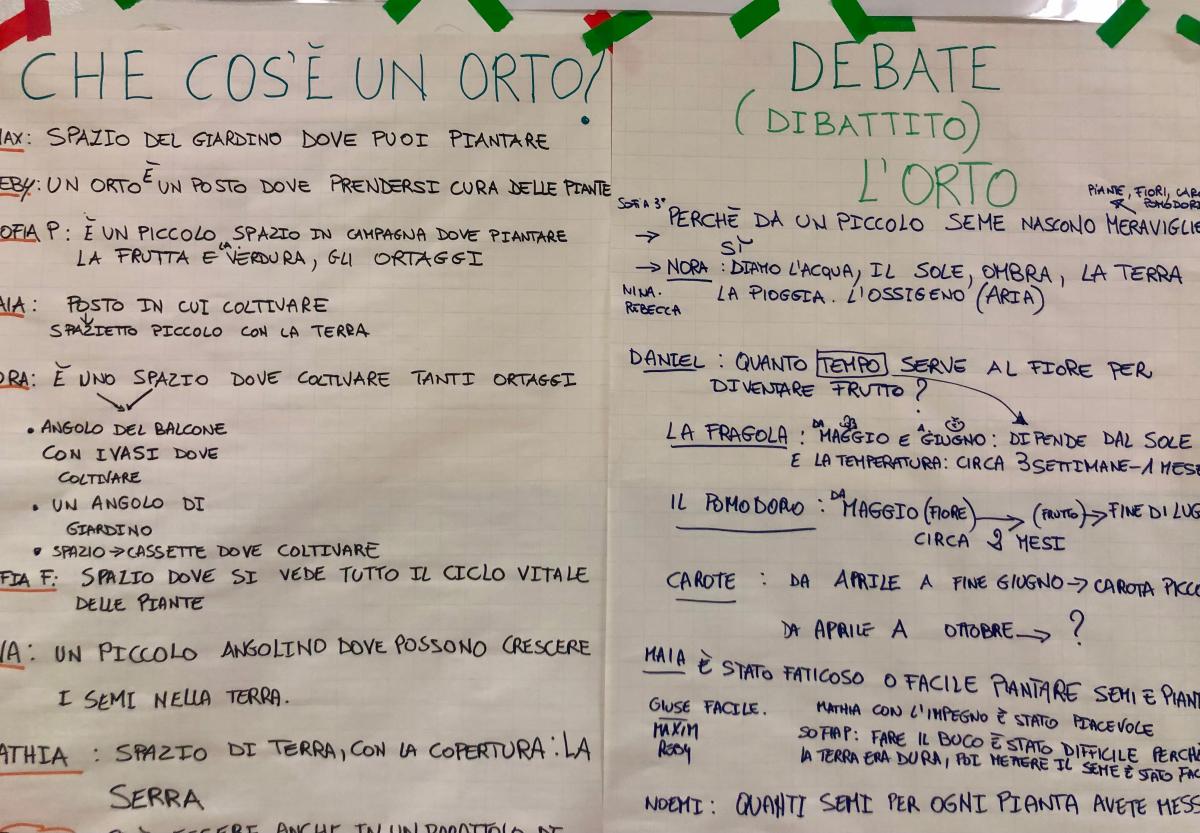 CHE COS'È UN ORTO?
AX: SPAZIO DEL GIARDINO DOVE PUOI PIANTARE
EBY: UN ORTO È UN POSTO DOVE PRENDERSI CURA DELLE PIANTE
OFIA P: È UN PICCOLO SPAZIO IN CAMPAGNA DOVE PIANTARE
LA FRUTTA E LA VERDURA, GLI ORTAGGI
AIA: POSTO IN CUI COLTIVARE
SPAZIETTO PICCOLO CON LA TERRA
ORA: È UNO SPAZIO DOVE COLTIVARE TANTI ORTAGGI
• ANGOLO DEL BALCONE
CON I VASI DOVE
COLTIVARE
• UN ANGOLO DI
GIARDINO
• SPAZIO → CASSETTE DOVE COLTIVARE
FIA F: SPAZIO DOVE SI VEDE TUTTO IL CICLO VITALE
DELLE PIANTE
VA: UN PICCOLO ANGOLINO DOVE POSSONO CRESCERE
I SEMI NELLA TERRA.
ATHIA: SPAZIO DI TERRA, CON LA COPERTURA: LA
SERRA
ESSERE ANCHE IN UN BARATTOLO DI
DEBATE
(DIBATTITO)
L'ORTO
PIANTE, FIORI, CARO
POMODORI
SOFIA 3°
→ PERCHÈ DA UN PICCOLO SEME NASCONO MERAVIGLIE
SÌ
→ NORA: DIAMO L'ACQUA, IL SOLE, OMBRA, LA TERRA
NINA. LA PIOGGIA. L'OSSIGENO (ARIA)
REBECCA
DANIEL: QUANTO TEMPO SERVE AL FIORE PER
DIVENTARE FRUTTO?
LA FRAGOLA: DA MAGGIO E A GIUGNO: DIPENDE DAL SOLE
E LA TEMPERATURA: CIRCA 3 SETTIMANE - 1 MESE
IL POMODORO: DA MAGGIO (FIORE) → (FRUTTO) → FINE DI LUG
CIRCA 2 MESI
CAROTE: DA APRILE A FINE GIUGNO → CAROTA PICCO
DA APRILE A OTTOBRE → ?
MAIA È STATO FATICOSO O FACILE PIANTARE SEMI E PIANT
GIUSE FACILE. MATHIA CON L'IMPEGNO È STATO PIACEVOLE
MAXIM SOFIAP: FARE IL BUCO È STATO DIFFICILE PERCHÈ
LA TERRA ERA DURA, POI METTERE IL SEME È STATO FAC
NOEMI: QUANTI SEMI PER OGNI PIANTA AVETE MESS